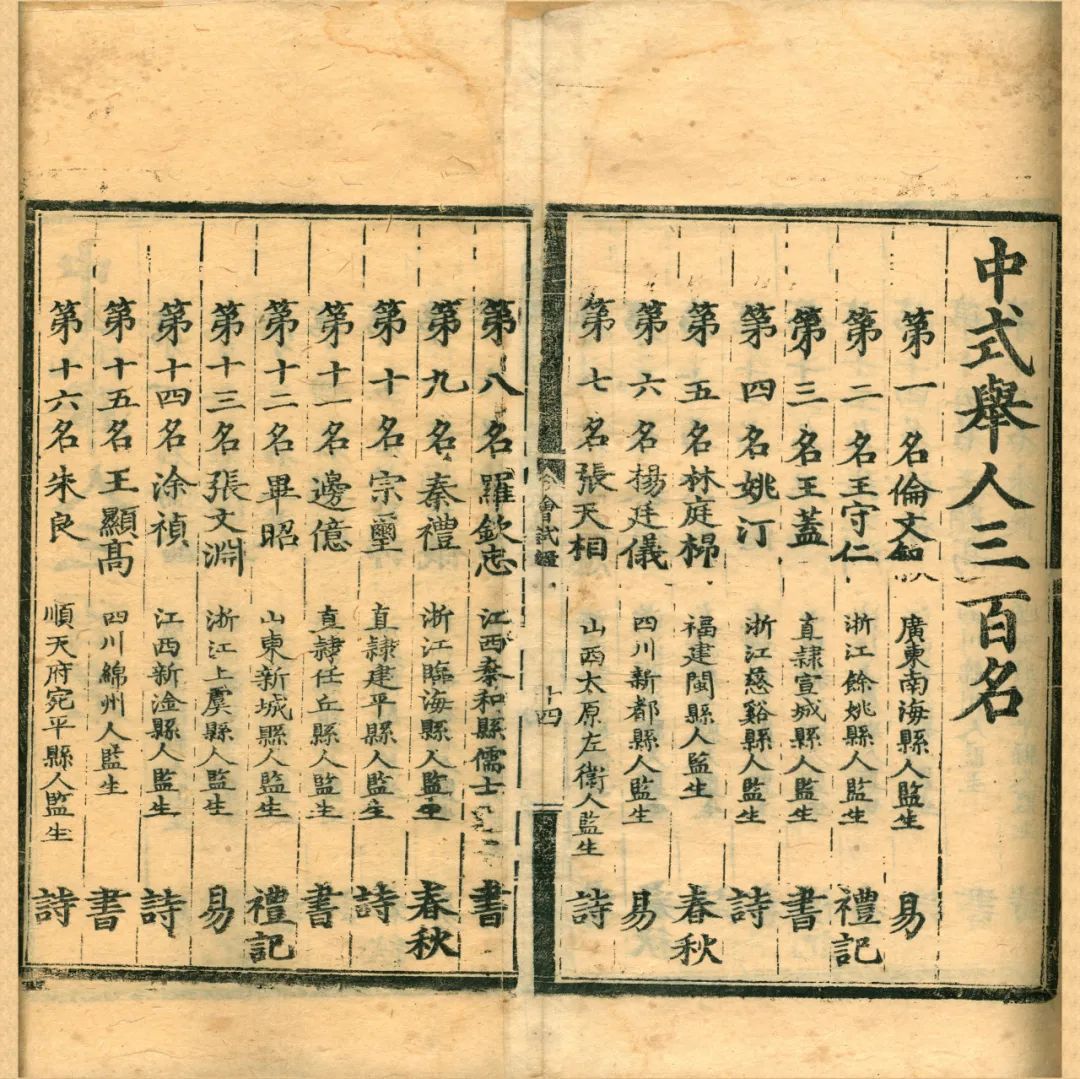 中式舉人三百名
第一名倫文叙 廣東南海縣人監生 易
第二名王守仁 浙江餘姚縣人監生 禮記
第三名王蓋 直隸宣城縣人監生 書
第四名姚汀 浙江慈谿縣人監生 詩
第五名林庭㭿 福建閩縣人監生 春秋
第六名楊廷儀 四川新都縣人監生 易
第七名張天相 山西太原左衛人監生 詩
會試錄
十四
第八名羅欽忠 江西泰和縣儒士 書
第九名秦禮 浙江臨海縣人監生 春秋
第十名宗璽 直隸建平縣人監生 詩
第十一名邊億 直隸任丘縣人監生 書
第十二名畢昭 山東新城縣人監生 禮記
第十三名張文淵 浙江上虞縣人監生 易
第十四名涂禎 江西新淦縣人監生 詩
第十五名王顯高 四川綿州人監生 書
第十六名朱良 順天府宛平縣人監生 詩